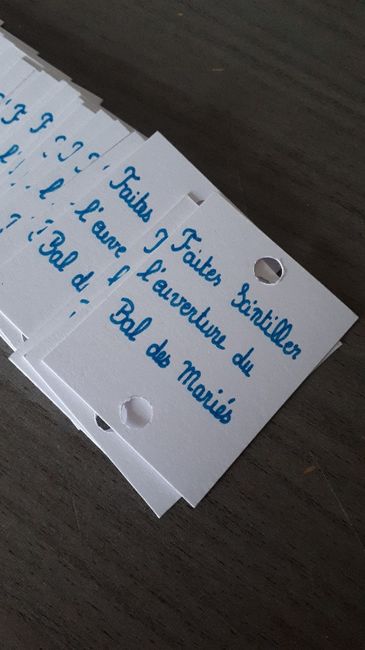 Faites Scintiller
l'ouverture du
Bal des Mariés
Faites
l'ouve
Bal d